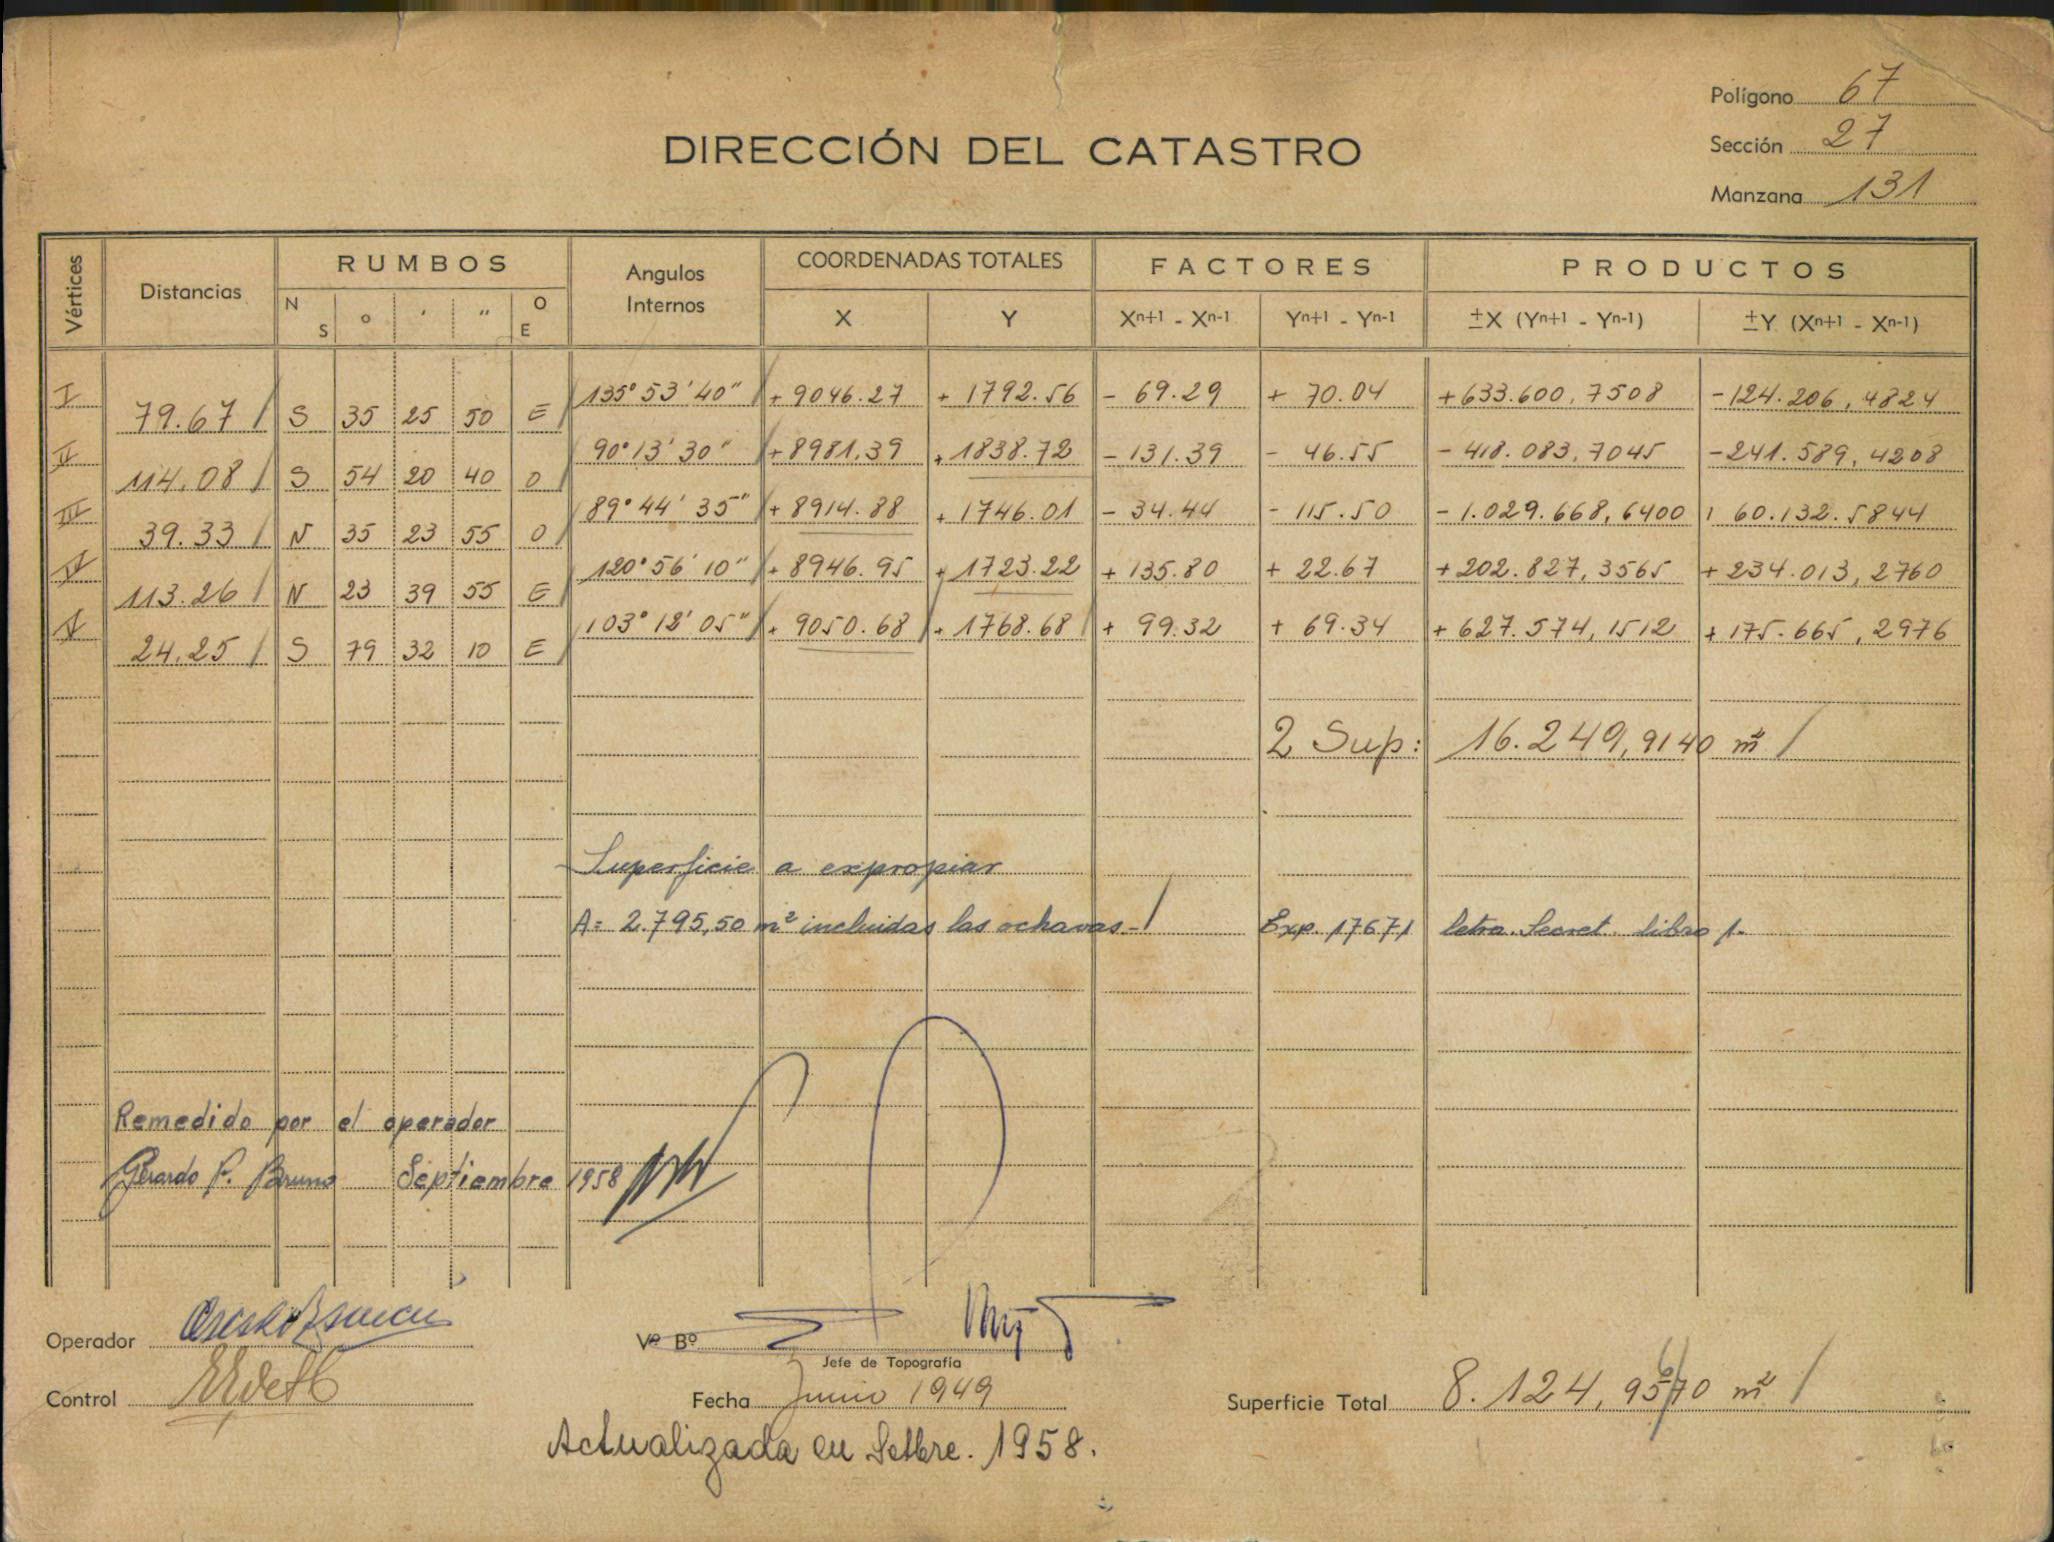 Polígono 67
Sección 27
Manzana 131
DIRECCIÓN DEL CATASTRO
Vértices Distancias RUMBOS Angulos Internos COORDENADAS TOTALES FACTORES PRODUCTOS
N S ° ' " O E X Y Xn+1 - Xn-1 Yn+1 - Yn-1 ±X (Yn+1 - Yn-1) ±Y (Xn+1 - Xn-1)
I 135° 53' 40" + 9046.27 + 1792.56 - 69.29 + 70.04 +633.600,7508 -124.206,4824
79.67 S 35 25 50 E
II 90° 13' 30" +8981.39 + 1838.72 - 131.39 - 46.55 - 418.083,7045 -241.589,4208
114.08 S 54 20 40 O
III 89° 44' 35" + 8914.88 + 1746.01 - 34.44 - 115.50 - 1.029.668,6400 60.132.5844
39.33 N 35 23 55 O
IV 120° 56' 10" + 8946.95 + 1723.22 + 135.80 + 22.67 +202.827,3565 + 234.013,2760
113.26 N 23 39 55 E
V 103° 12' 05" + 9050.68 + 1768.68 + 99.32 + 69.34 + 627.574,1512 + 175.665,2976
24.25 S 79 32 10 E
2 Sup: 16.249,9140 m²
Superficie a expropiar
A= 2.795,50 m² incluidas las ochavas.- Exp. 17671 letra Secret. libro 1.
Remedido por el operador
Gerardo P. Bruno Septiembre 1958
Operador
Vº Bº
Jefe de Topografía
Control
Fecha Junio 1949
Superficie Total 8.124,9570 m²
6
Actualizada en Setbre. 1958.